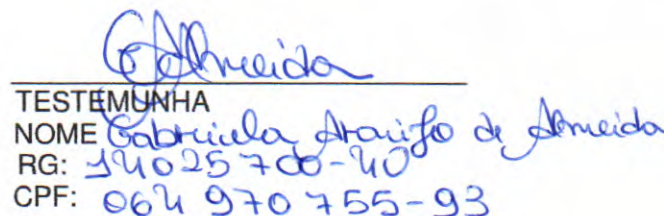 GAlmeida
TESTEMUNHA
NOME Gabriela Araújo de Almeida
RG: 14025700-40
CPF: 064 970 755-93